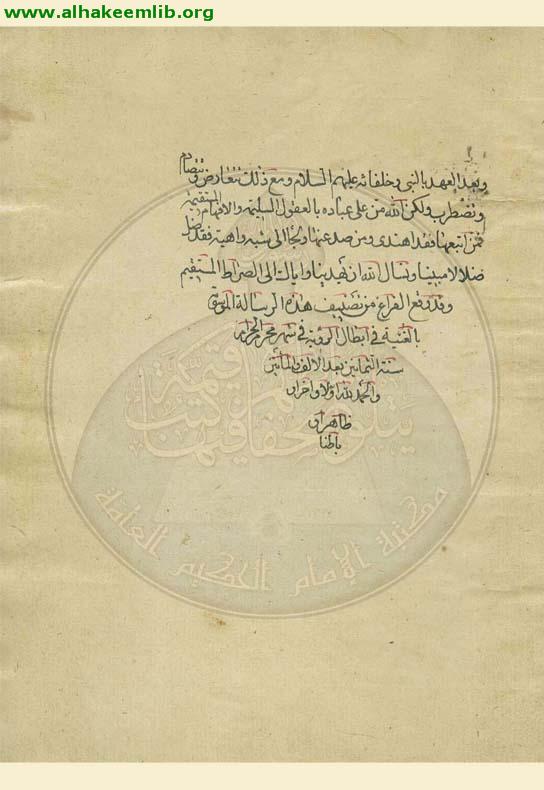 www.alhakeemlib.org
وبعد العهد بالنبي وخلفائه عليهم السلام ومع ذلك تتعارض وتتصادم
وتضطرب ولكن الله من على عباده بالعقول السليمة والافهام المستقيمة
فمن اتبعها فقد اهتدى ومن صد عنها ولجأ الى شبه واهية فقد ضل
ضلالا مبينا ونسال الله ان يهدينا واياك الى الصراط المستقيم
وقد وقع الفراغ من تصنيف هذه الرسالة
بالغنية في ابطال الرؤية في شهر محرم الحرام
سنة الثمانين بعد الالف والمأتين
والحمد لله اولا واخرا و
ظاهرا و
باطنا
مكتبة الإمام الحكيم العامة